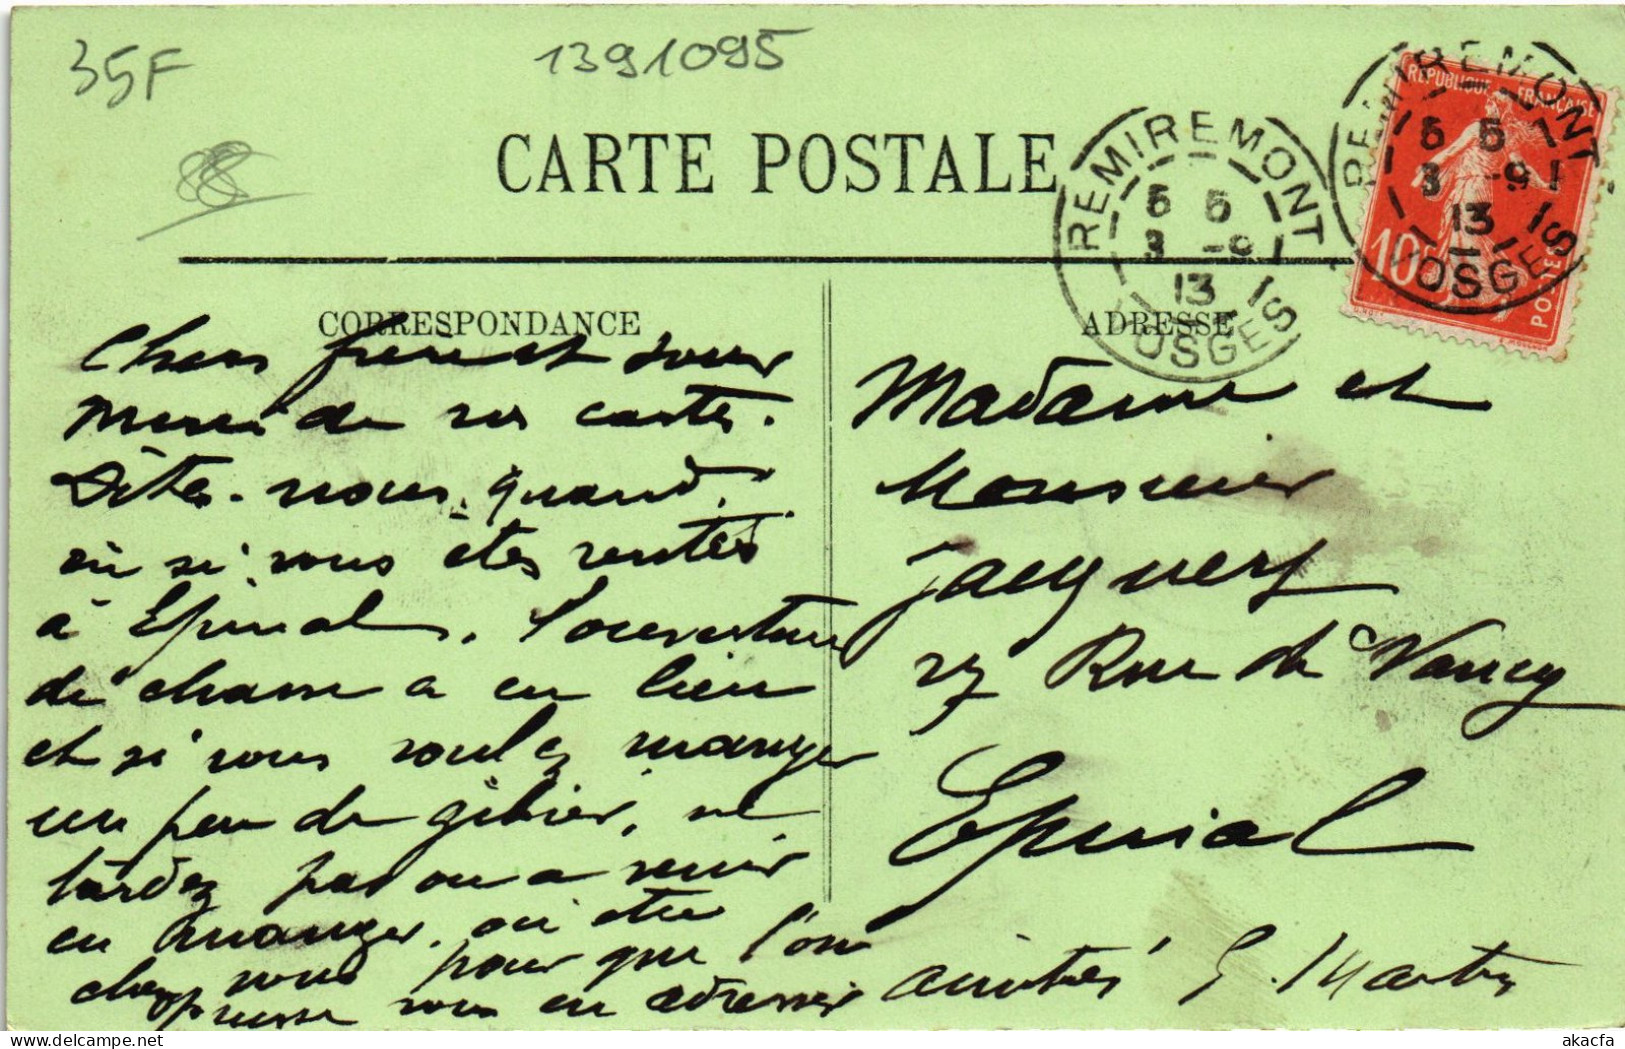 35F
1391095
CARTE POSTALE
REMIREMONT
5 5
3 -9
13
VOSGES
REMIREMONT
5 5
3 -9
13
VOSGES
REPUBLIQUE FRANÇAISE
10c
POSTES
CORRESPONDANCE
ADRESSE
Chers frère et sœur
Merci de vos cartes.
Dites-nous quand,
où si vous êtes rentrés
à Epinal. L'ouverture
de chasse a eu lieu
et si vous voulez manger
un peu de gibier, ne
tardez pas ou a venir
en manger, où êtes
chez vous pour que l'on
puisse vous en adresser
amitiés G. Martin
Madame et
Monsieur
Jacquey
27 Rue de Nancy
Epinal
akacfa